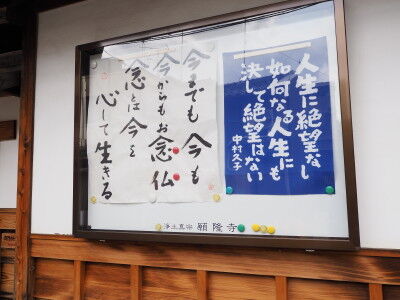 人生に絶望なし
如何なる人生にも
決して絶望はない
中村久子
今までも 今も
今からもお念仏
念とは 今を
心して生きる
浄土真宗 願隆寺